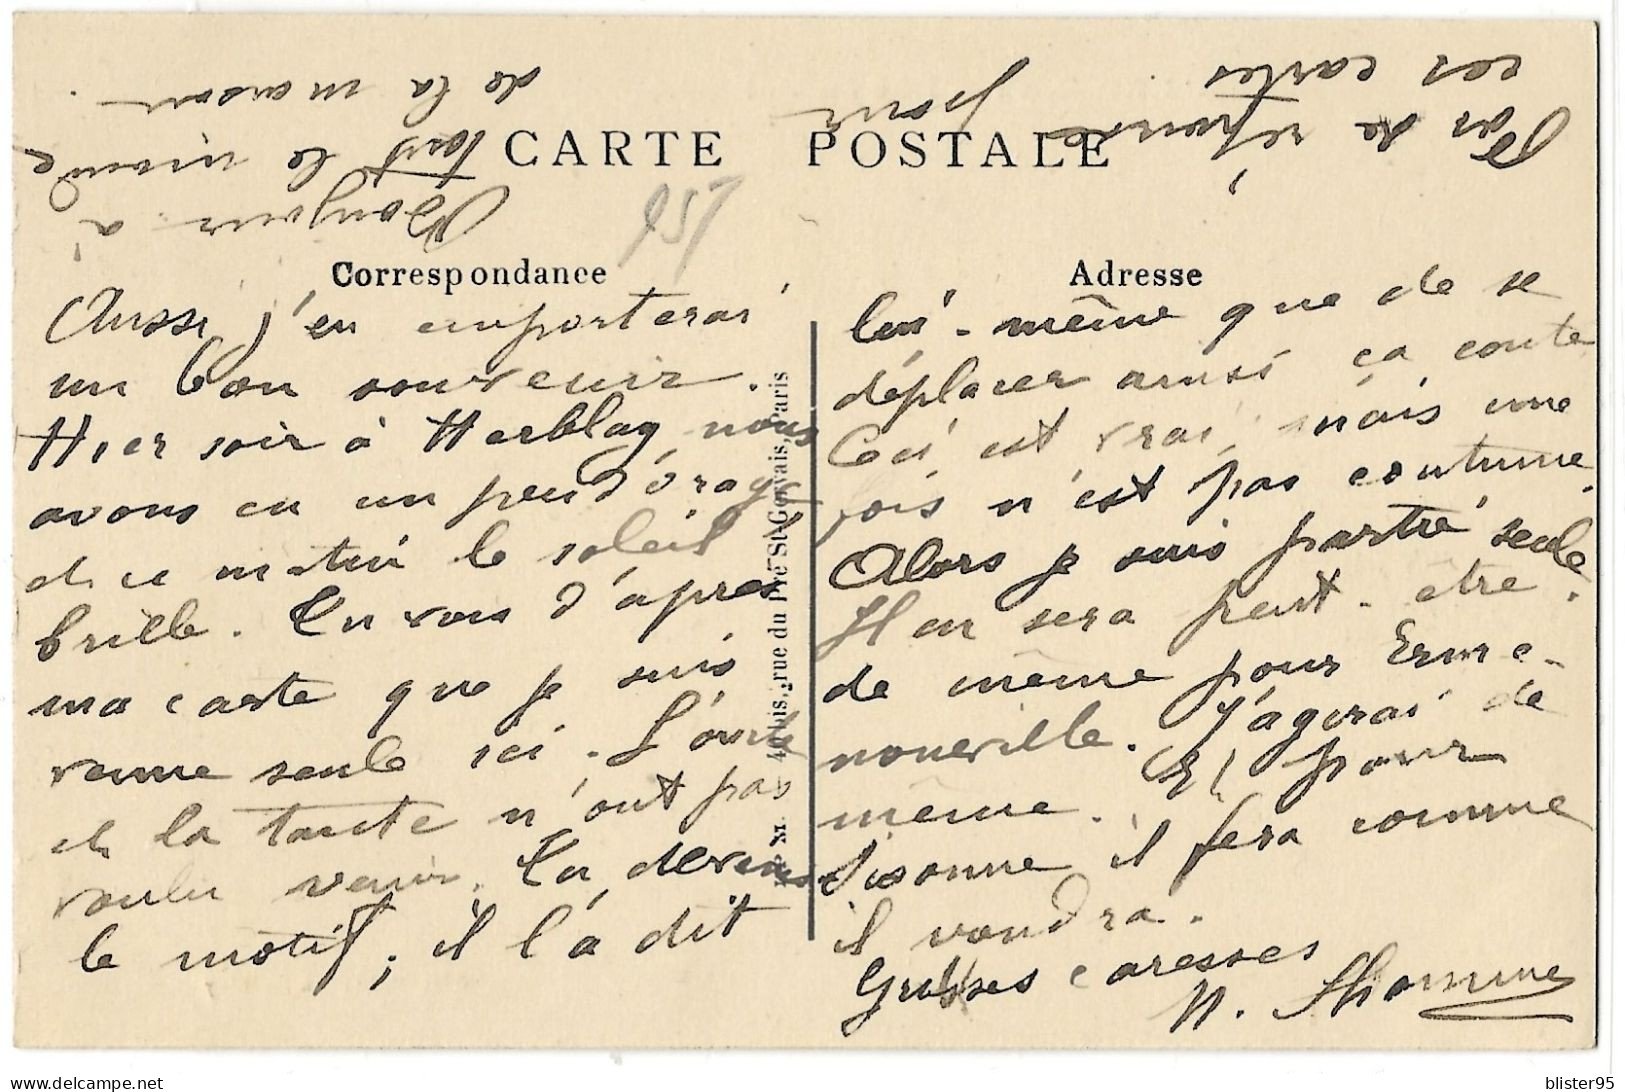 Pas de réponse pour
ces cartes
Bonjour à
tout le monde
de la maison.
CARTE POSTALE
Correspondance
Adresse
Aussi j'en emporterai
un bon souvenir.
Hier soir à Herblay nous
avons eu un peu d'orage
et ce matin le soleil
brille. Tu vois d'après
ma carte que je suis
venue seule ici. L'oncle
et la tante n'ont pas
voulu venir. Tu devines
le motif; il l'a dit
lui-même que de se
déplacer ainsi ça coute
Ceci est vrai, mais une
fois n'est pas coutume.
Alors je suis partie seule.
Il en sera peut-être
de même pour Erme-
nonville. J'agirai de
même. Et pour
Sisonne il fera comme
il voudra.
Grosses caresses
N. Thomme
rue du Pré St-Gervais, Paris
blister95